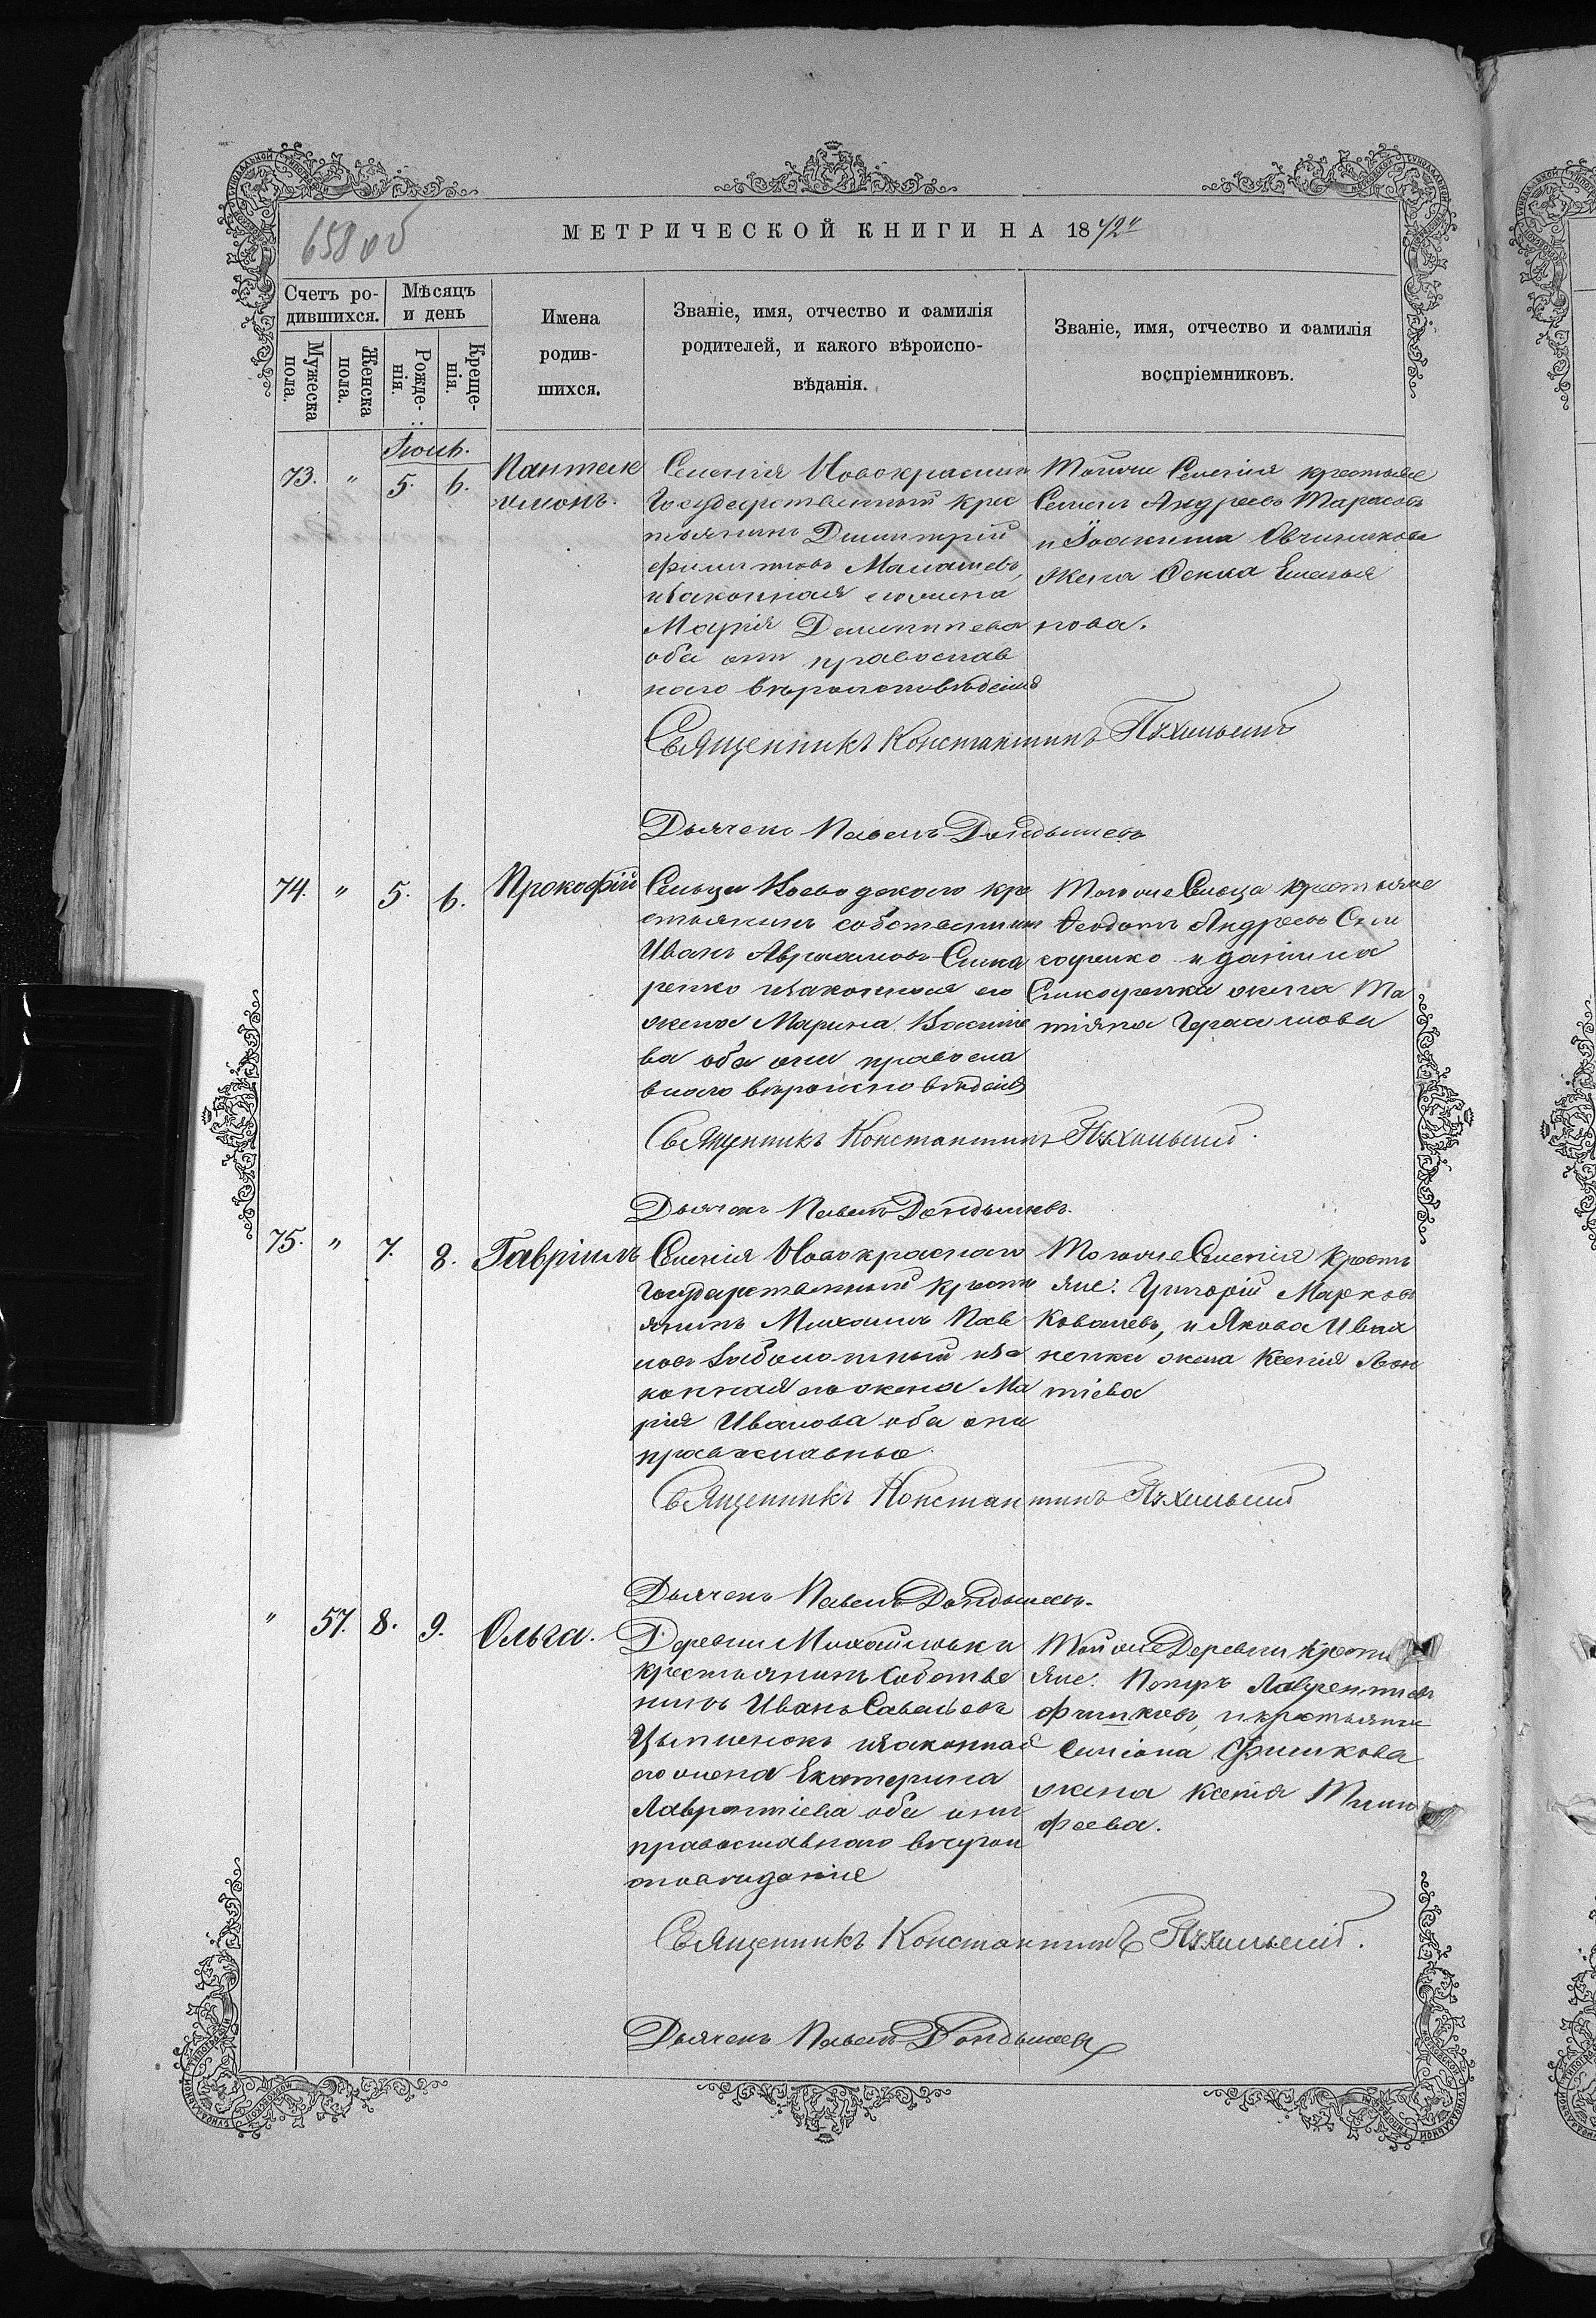 658 об
МЕТРИЧЕСКОЙ КНИГИ НА 1872 г
Счетъ ро-
дившихся.
Мѣсяцъ
и день
Мужеска
пола.
Женска
пола.
Рожде-
нія.
Креще-
нія.
Имена
родив-
шихся.
Званіе, имя, отчество и фамилія
родителей, и какого вѣроиспо-
вѣданія.
Званіе, имя, отчество и фамилія
воспріемниковъ.
73. " 5. 6.
Пантеле
имонъ.
Селенія Новокрасн
Государственный крес
тьянинъ Димитрій
Филиповъ
изаконная его жена
Марія
оба они православ
наго вѣроисповѣденія
Тогоже Селенія крестьяне
Семенъ Андреевъ Тарасовъ
и Іоакима Овчиникова
жена Фекла Емелья
нова.
Священникъ Константинъ
Дьячекъ Павелъ Дондышевъ
74. " 5. 6.
Прокофій
Сельца кре
стьянинъ собственникъ
Иванъ Авраамовъ
ренко изаконная его
жена Марина
ва оба они правосла
внаго вѣроисповѣденія
Тогоже Сельца крестьяне
Феодотъ Андреевъ
и Даніила
жена Та
тіяна Герасимова
Священникъ Константинъ
Дьячекъ Павелъ Дондышевъ.
75. " 7. 8.
Гавріилъ
Селенія Новокраснаго
Государственный крестъ
янинъ Михаилъ Пав
ловъ Заболотный иза
конная его жена Ма
рія Иванова оба они
православные
Тогоже Селенія крестъ
яне: Григорій Марковъ
Ковалевъ, и Якова Иван
ненки жена Ксенія Леон
тіева
Священникъ Константинъ
Дьячекъ Павелъ Дондышевъ.
" 57. 8. 9.
Ольга.
Деревни Михайловки
крестьянинъ Собстве
никъ Иванъ Савельевъ
изаконная
его жена Екатерина
Лаврентіева оба они
православнаго
Тойже Деревни крестъ
яне: Петръ Лаврентіевъ
и крестьянина
Симіона Фишкова
жена Ксенія Тимо
феева.
Священникъ Константинъ
Дьячекъ Павелъ Дондышевъ